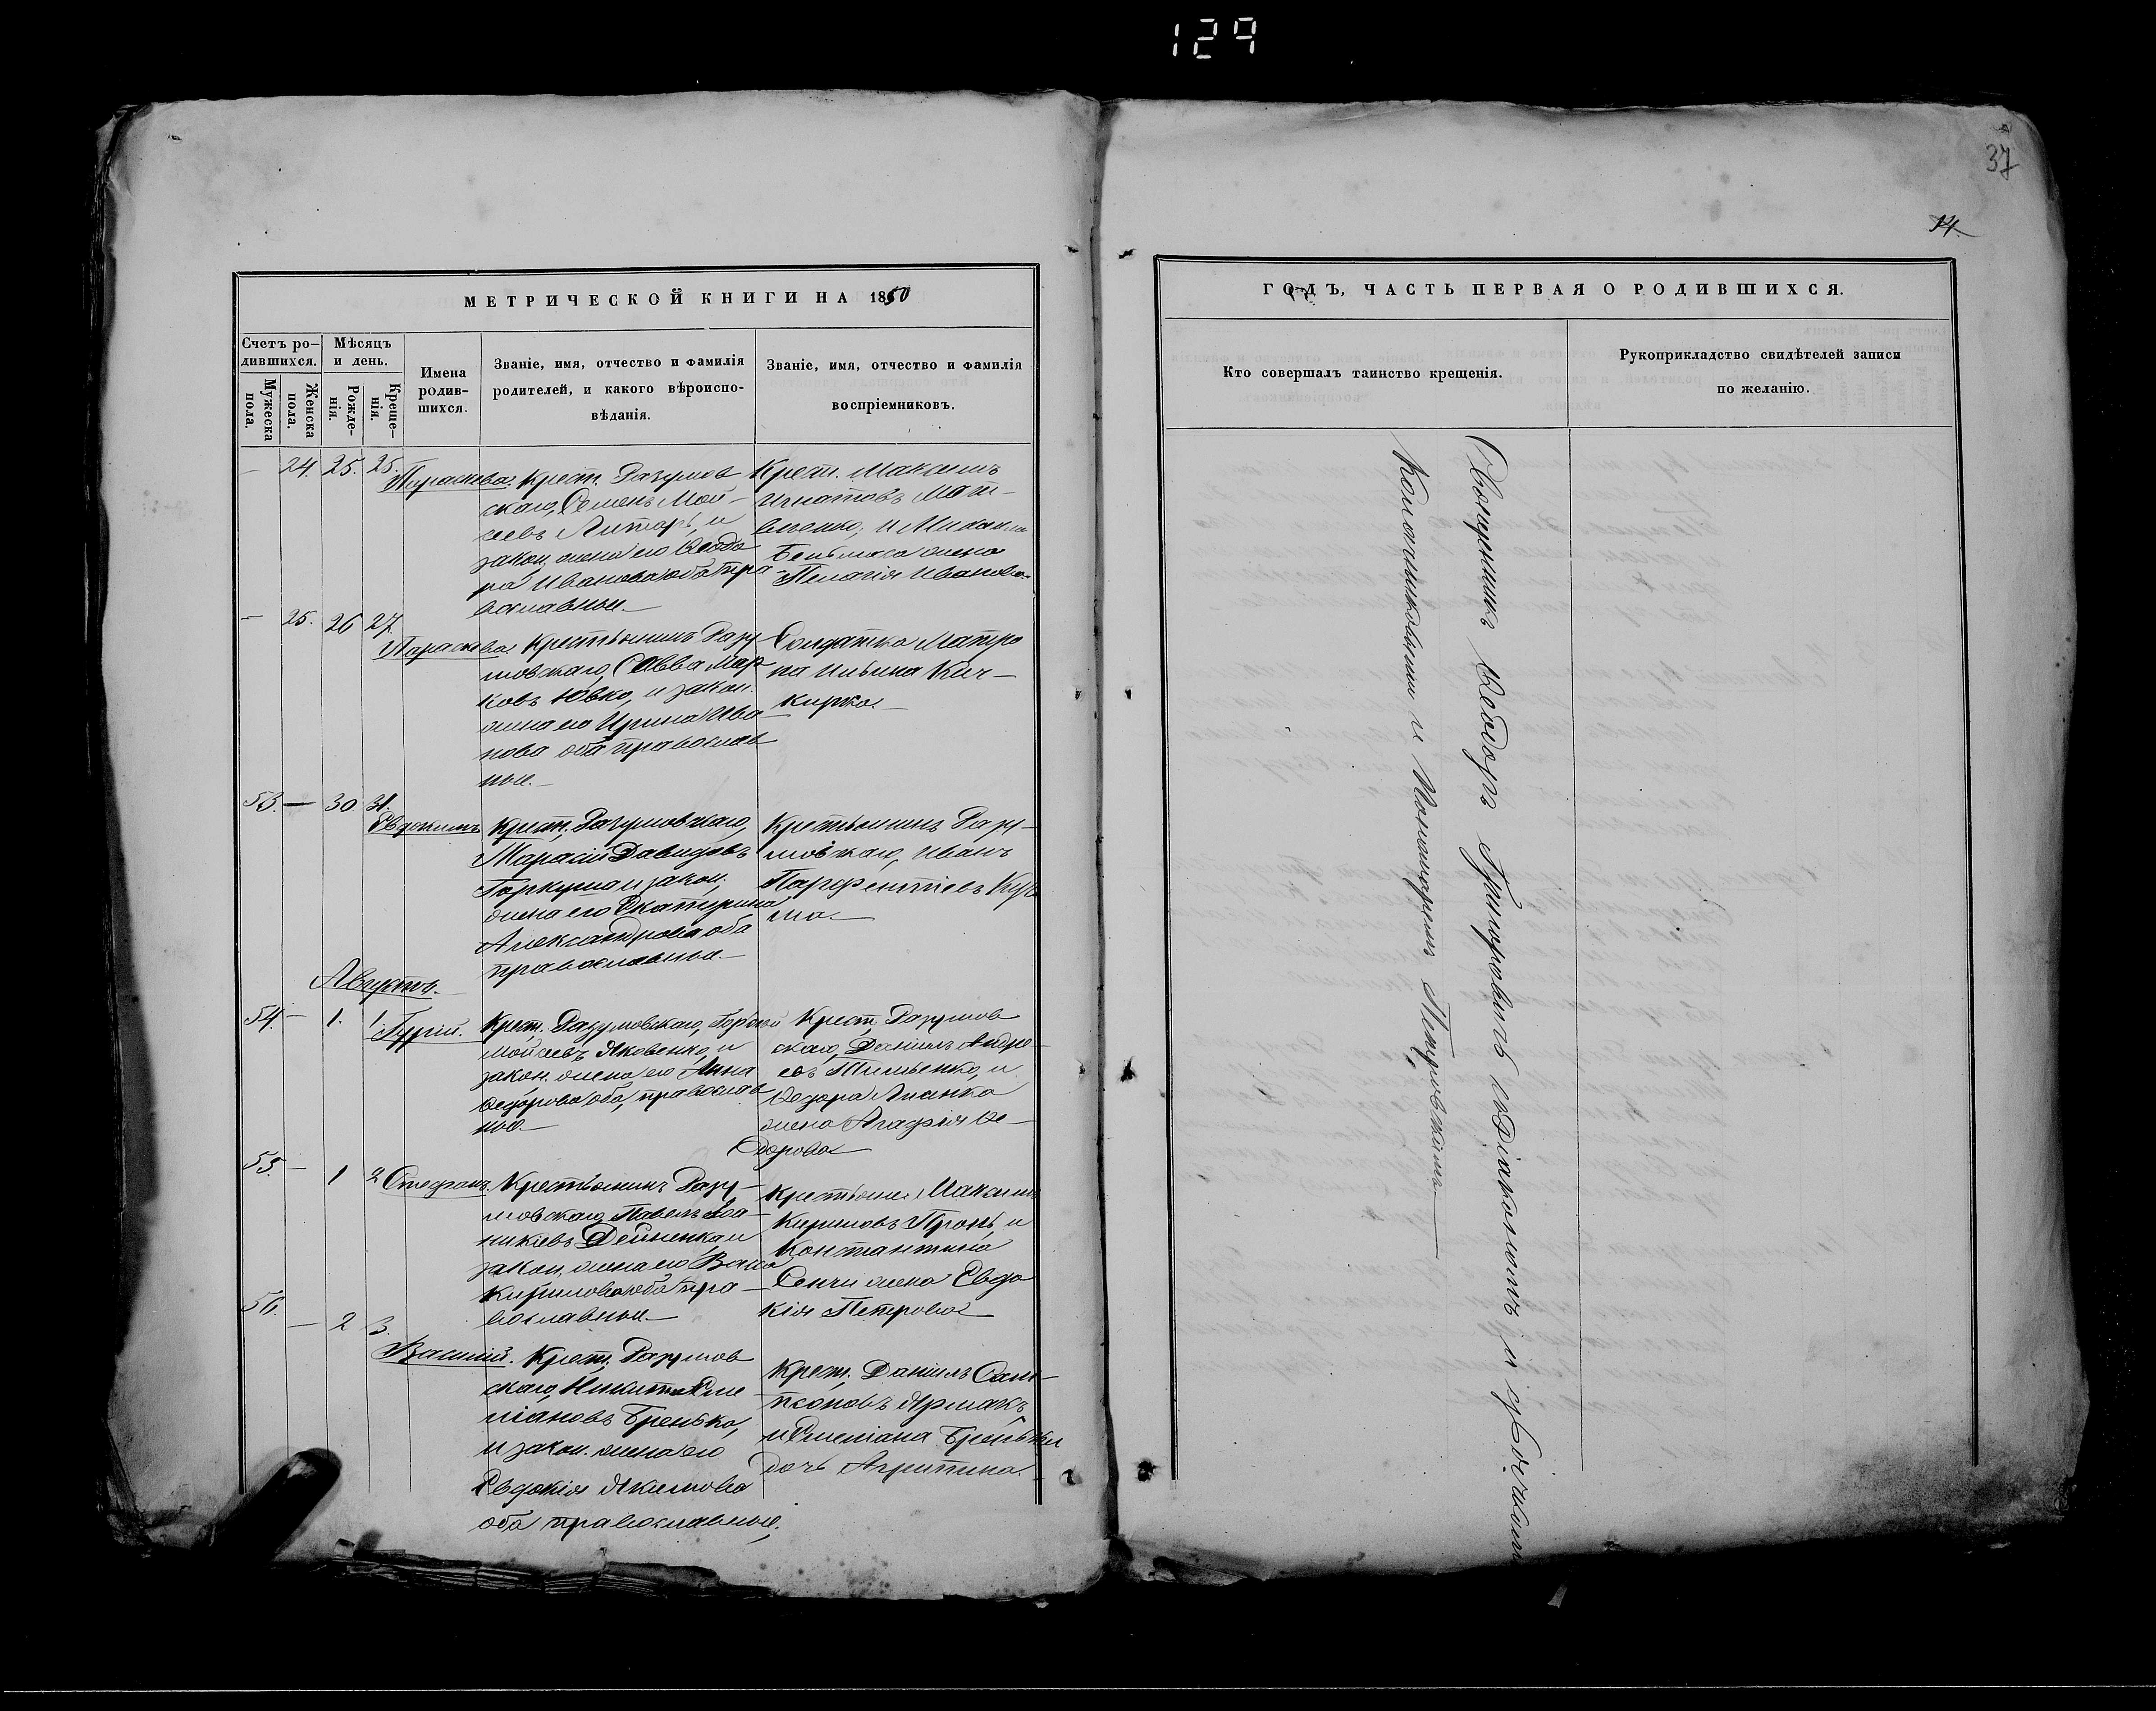 129
37
14.
МЕТРИЧЕСКОЙ КНИГИ НА 1850
Счетъ ро-
дившихся.
Мѣсяцъ
и день.
Мужеска
пола.
Женска
пола.
Рожде-
нія.
Креще-
нія.
Имена
родив-
шихся.
Званіе, имя, отчество и фамилія
родителей, и какого вѣроиспо-
вѣданія.
Званіе, имя, отчество и фамилія
воспріемниковъ.
— 24. 25. 25.
Параскева.
Крест. Разумов
скаго, Семенъ Мой-
сеевъ Литаръ, и
закон. жена его Ѳеодо
ра Иванова оба пра-
вославные.—
Крест. Максимъ
Игнатовъ Мат-
вѣенко, и
жена
Пелагія Иванова.
— 25. 26 27.
Параскева.
Крестьянинъ Разу
мовскаго, Савва Мар
ковъ Ювко, и закон.
жена его Ирина Ива
нова оба православ
ные.—
Солдатка Матро
на Ильина Кич-
кирка.
53. — 30 31.
Евдокимъ
Крест. Разумовскаго,
Тарасій Давидовъ
Горкуша и закон.
жена его Екатерина
Александрова оба
православные.—
Крестьянинъ Разу-
мовскаго, Иванъ
Парфентіевъ
Августъ.
54. — 1. 1
Гурій.
Крест. Разумовскаго,
Мойсеевъ Яковенко, и
закон. жена его Анна
Ѳедорова оба православ
ные.—
Крест. Разумов
скаго, Даніилъ Андре
евъ и
Ѳедора
жена Агафія Ѳе-
дорова
55. — 1 2
Стефанъ.
Крестьянинъ Разу-
мовскаго, Павелъ Іоа-
никіевъ Дейненка и
закон. жена его Васса
Кирилова оба пра-
вославные.—
Крестьян. Максимъ
Кириловъ Пронь, и
Константина
Сенчи жена Евдо
кія Петрова
56. — 2 3.
Василій.
Крест. Разумов
скаго, Никита Еме
ліановъ Гренько,
и закон. жена его
Евдокія Якимова
оба православные.
Крест. Даніилъ Сам-
псоновъ Ярмакъ,
и Емеліана Греньки
дочь Агрипина.
ГОДЪ, ЧАСТЬ ПЕРВАЯ О РОДИВШИХСЯ.
Кто совершалъ таинство крещенія.
Рукоприкладство свидѣтелей записи
по желанію.
Священникъ Ѳеодоръ Григоровичъ съ діакономъ и
и Пономаремъ Петровскимъ